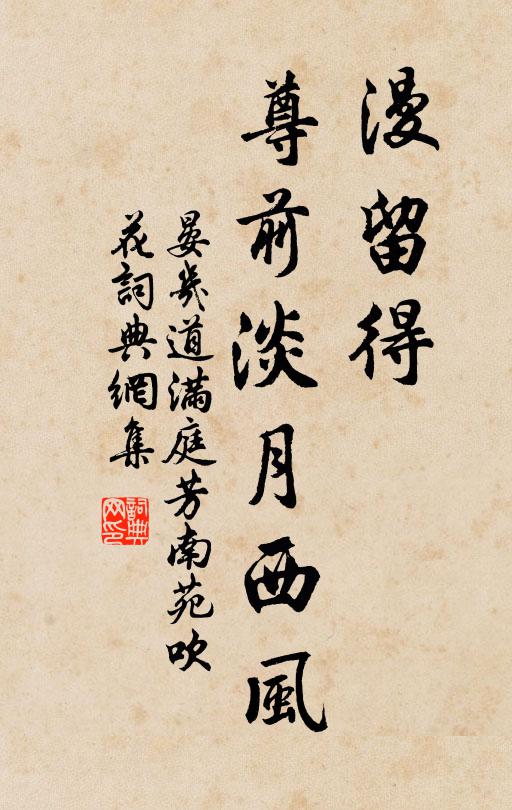 漫留得
尊前淡月西風
晏幾道滿庭芳南苑吹
花詞典網集
詞典
网印